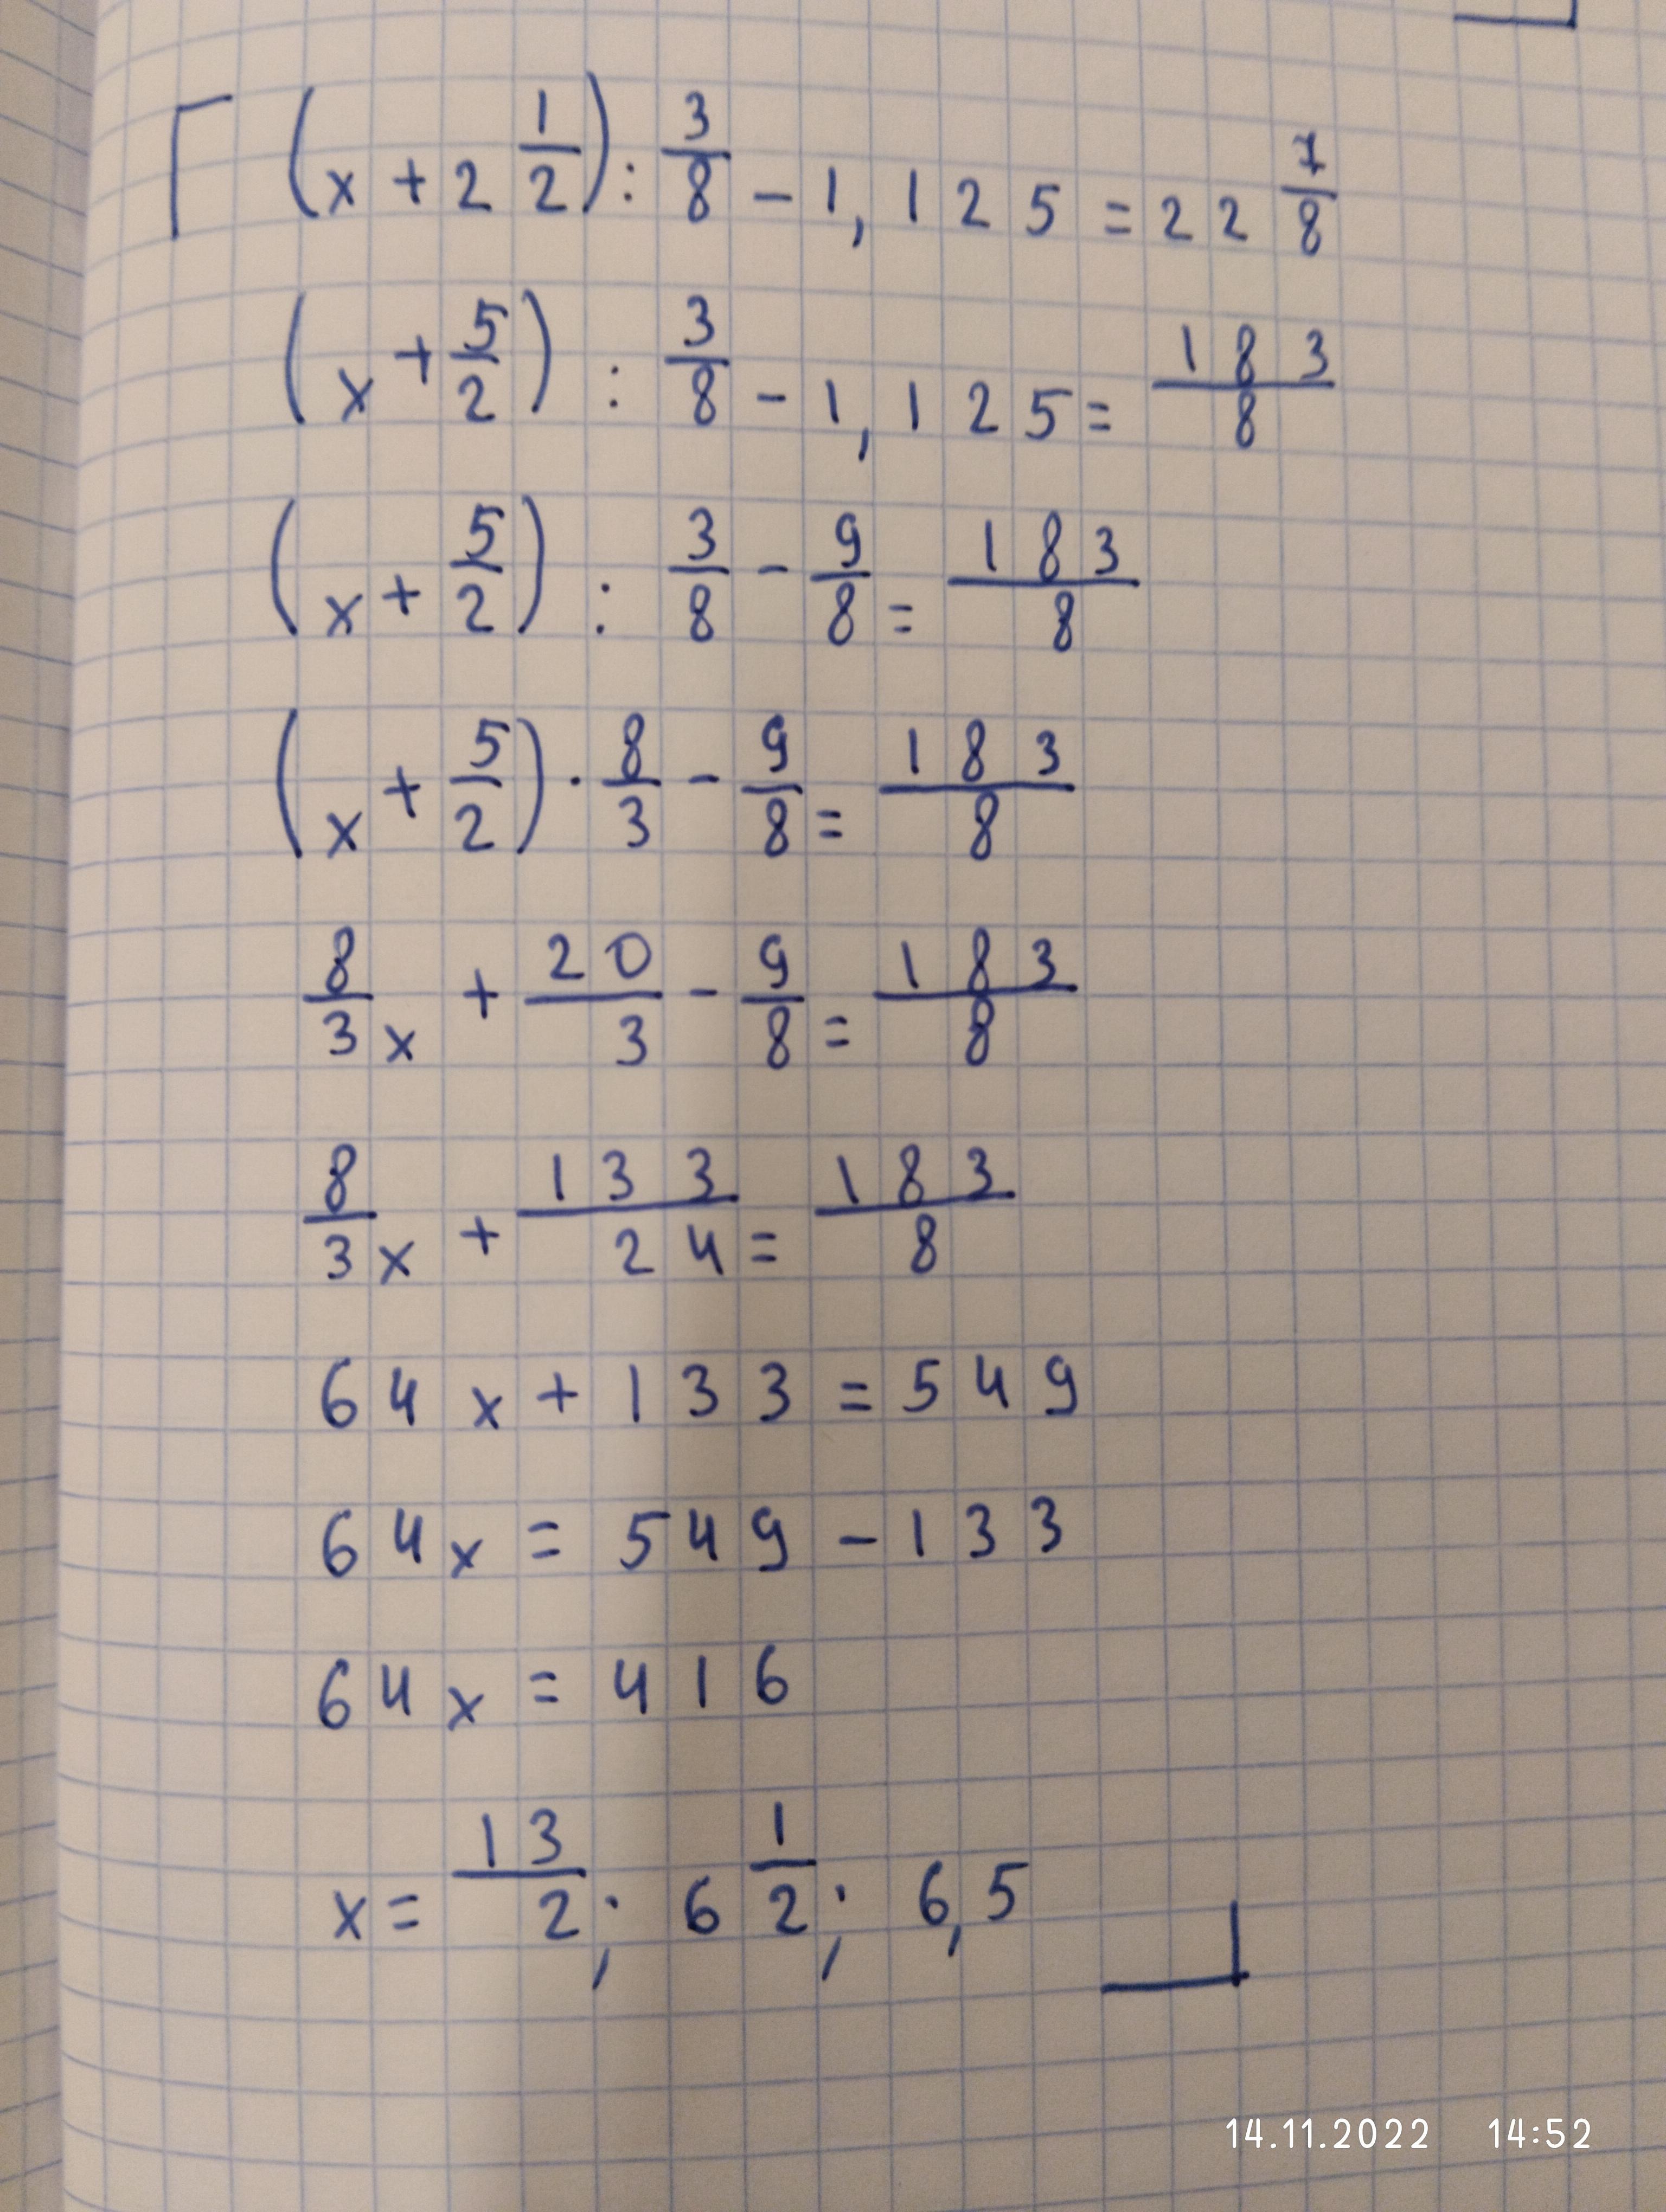 (x + 2 1/2) : 3/8 - 1,125 = 22 7/8
(x + 5/2) : 3/8 - 1,125 = 183/8
(x + 5/2) : 3/8 - 9/8 = 183/8
(x + 5/2) · 8/3 - 9/8 = 183/8
8/3 x + 20/3 - 9/8 = 183/8
8/3 x + 133/24 = 183/8
64x + 133 = 549
64x = 549 - 133
64x = 416
x = 13/2; 6 1/2; 6,5
14.11.2022 14:52